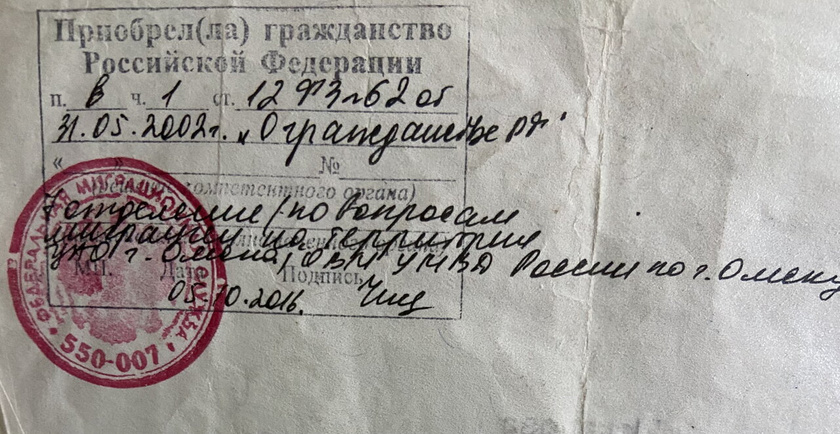 Приобрел(ла) гражданство
Российской Федерации
п. в ч. 1 ст. 12 ФЗ №62 от
31.05.2002г. „О гражданстве РФ"
« » №
компетентного органа)
отделение /по вопросам
миграции на территории
УАО г. Омска/ ОВМ УМВД России по г. Омску
М.П. Дата Подпись
05.10.2016.
ФЕДЕРАЛЬНАЯ МИГРАЦИОННАЯ СЛУЖБА
* 550-007 *